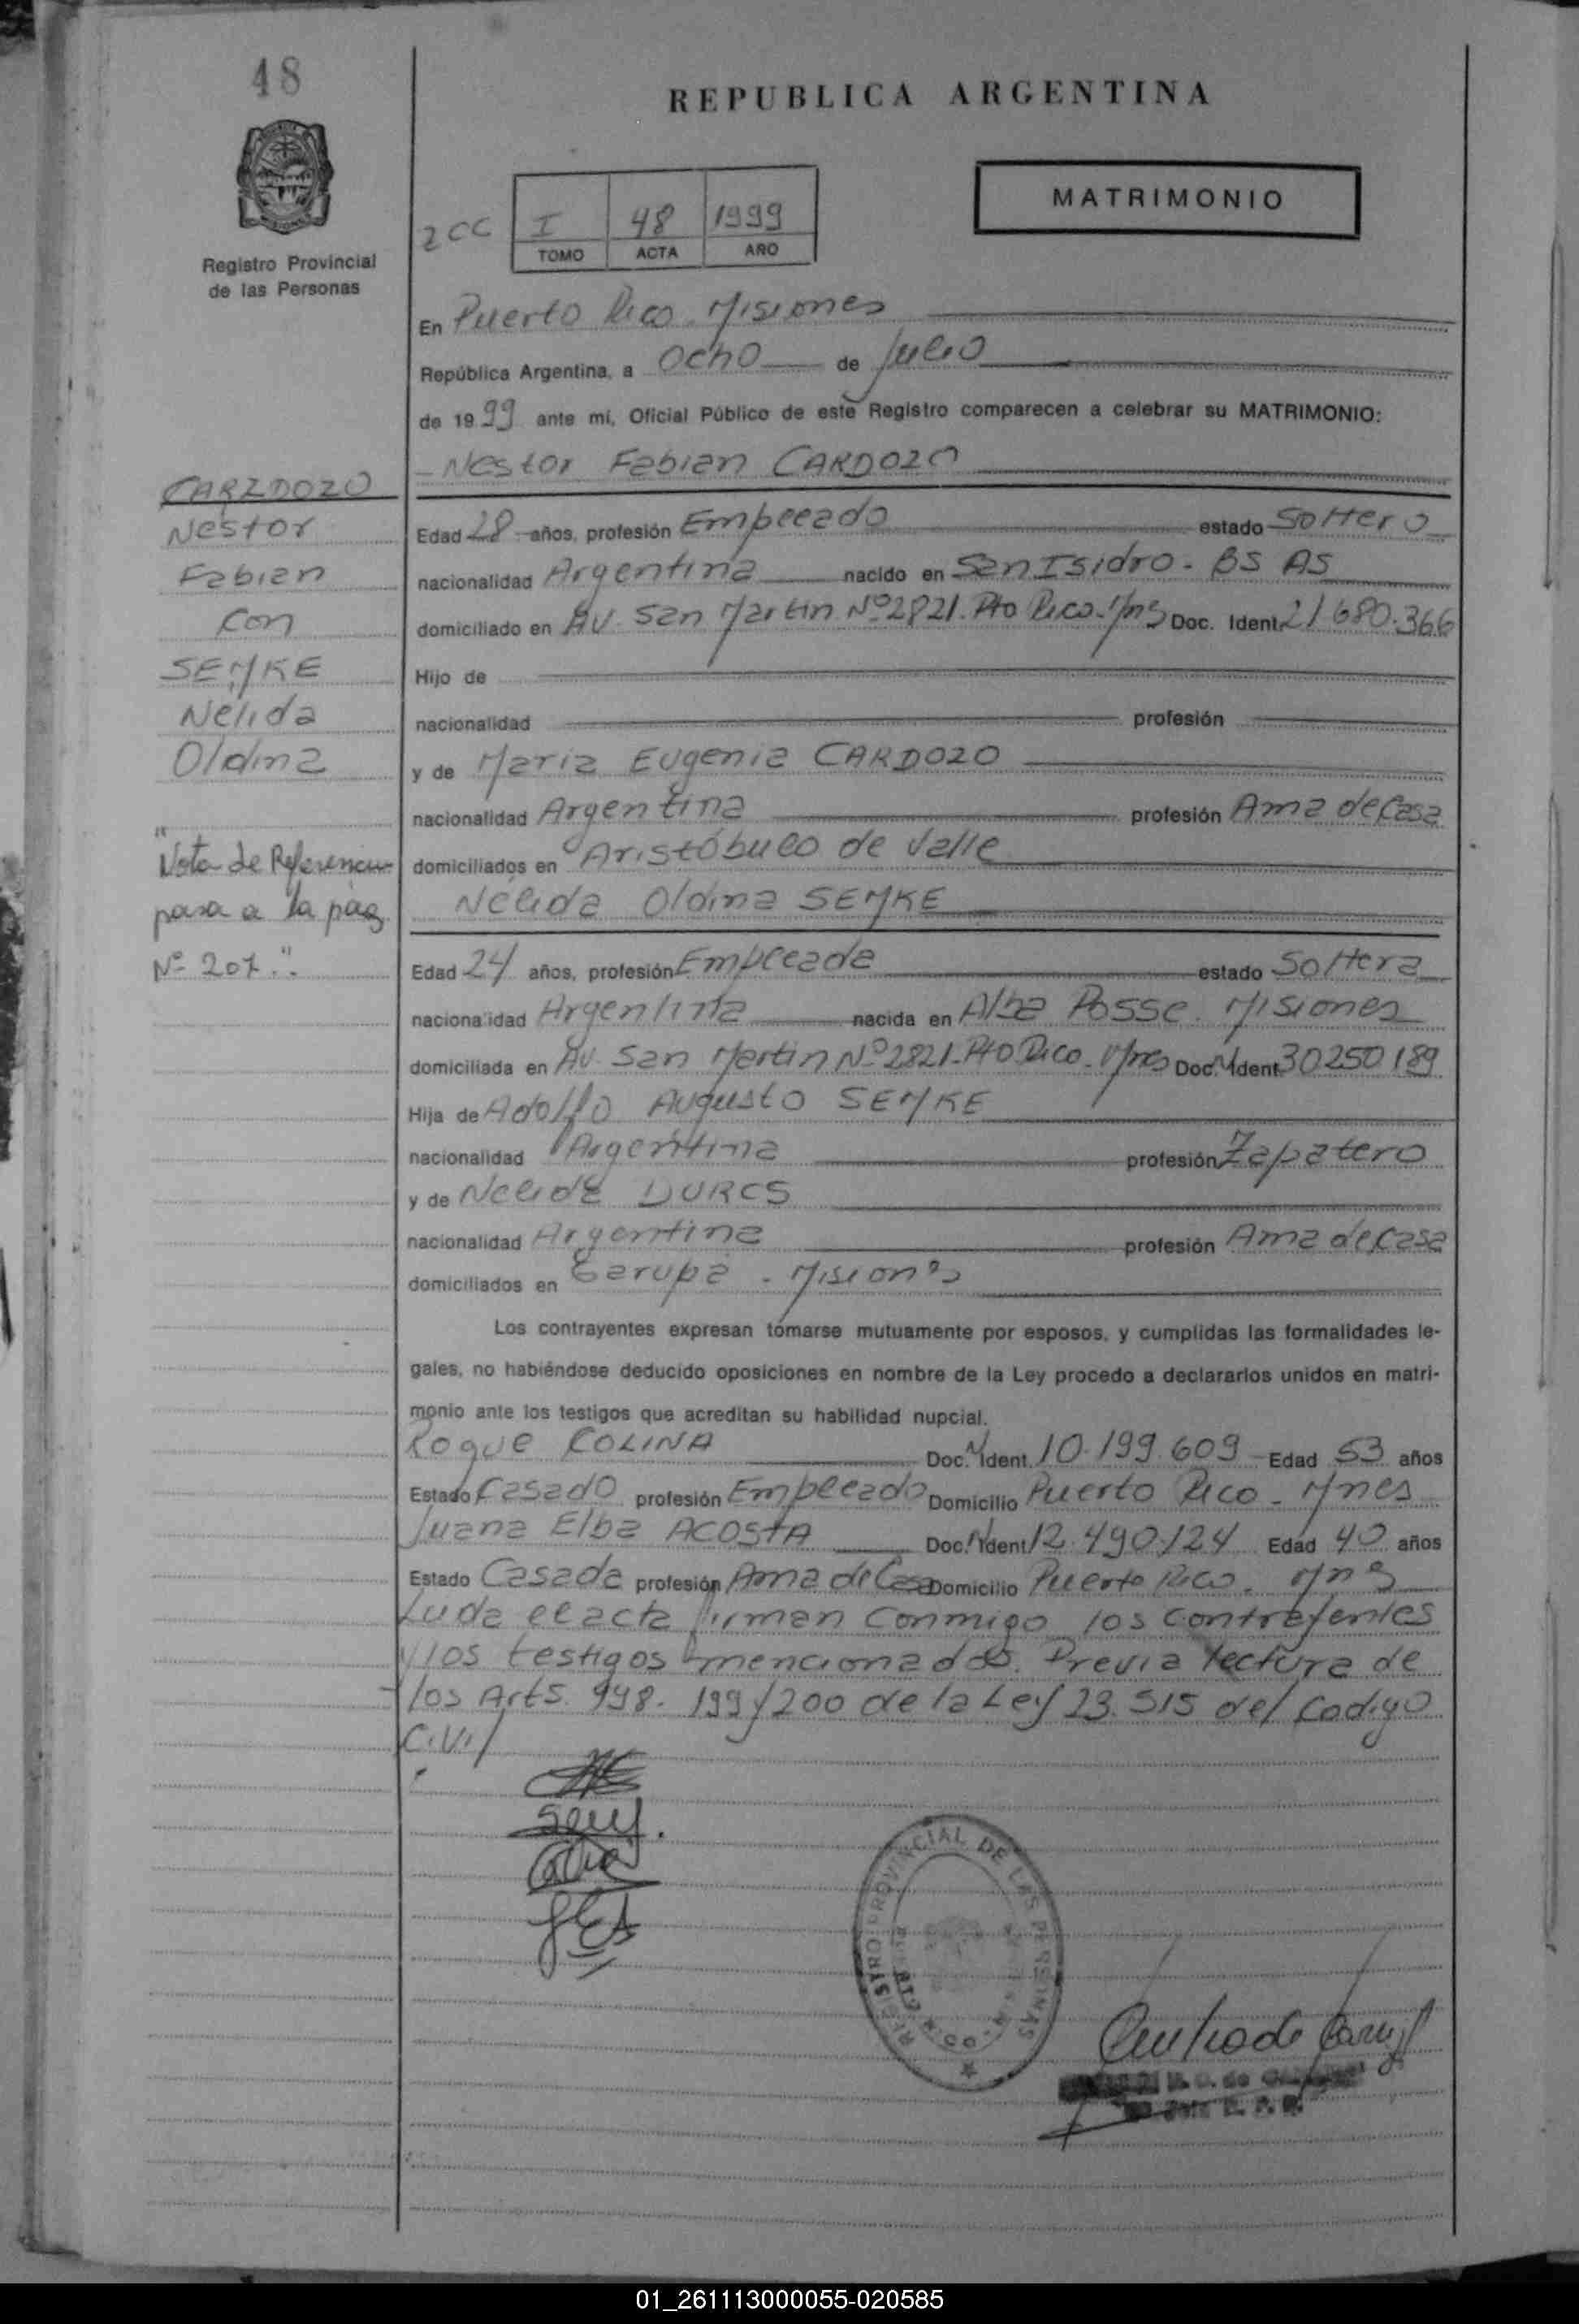 48
REPUBLICA ARGENTINA
MATRIMONIO
2CC I 48 1999
TOMO ACTA AÑO
Registro Provincial
de las Personas
En Puerto Rico - Misiones
República Argentina, a Ocho de Julio
de 1999 ante mí, Oficial Público de este Registro comparecen a celebrar su MATRIMONIO:
- Nestor Fabian CARDOZO
CARZDOZO
Nestor
Fabian
con
SEMKE
Nelida
Oldina
"Nota de Referencia
pasa a la pag
Nº 207."
Edad 28 años, profesión Empleado estado Soltero
nacionalidad Argentina nacido en San Isidro - BS AS
domiciliado en Av. San Martin Nº 2821. Pto Rico - Mns Doc. Ident. 21680.366
Hijo de
nacionalidad profesión
y de Maria Eugenia CARDOZO
nacionalidad Argentina profesión Ama de Casa
domiciliados en Aristóbulo de Valle
Nélida Oldina SEMKE
Edad 24 años, profesión Empleada estado Soltera
nacionalidad Argentina nacida en Alba Posse. Misiones
domiciliada en Av. San Martin Nº 2821 - Pto Rico - Mnes Doc. N Ident. 30250189
Hija de Adolfo Augusto SEMKE
nacionalidad Argentina profesión Zapatero
y de Nelida DURCS
nacionalidad Argentina profesión Ama de Casa
domiciliados en Garupa - Misiones
Los contrayentes expresan tomarse mutuamente por esposos, y cumplidas las formalidades le-
gales, no habiéndose deducido oposiciones en nombre de la Ley procedo a declararlos unidos en matri-
monio ante los testigos que acreditan su habilidad nupcial.
Roque COLINA Doc. N Ident. 10.199.609 Edad 53 años
Estado Casado profesión Empleado Domicilio Puerto Rico - Mnes
Juana Elba ACOSTA Doc. N Ident. 12.490.124 Edad 40 años
Estado Casada profesión Ama de Casa Domicilio Puerto Rico. Mns
Luda el acta firman conmigo los contrayentes
y los testigos mencionados. Previa lectura de
los Arts. 998. 199/200 de la Ley 23.515 del Codigo
Civil
REGISTRO PROVINCIAL DE LAS PERSONAS
01_261113000055-020585